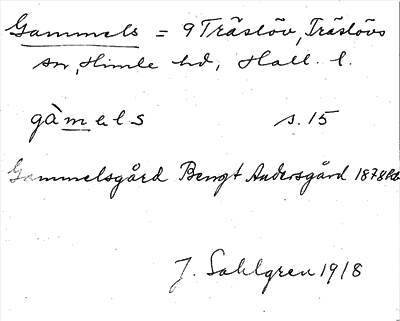 Gammels = 9 Träslöv, Träslövs
sn, Himle hd, Hall. l.
gàmals s. 15
Gammelsgård Bengt Andersgård 1878
J. Sahlgren 1918